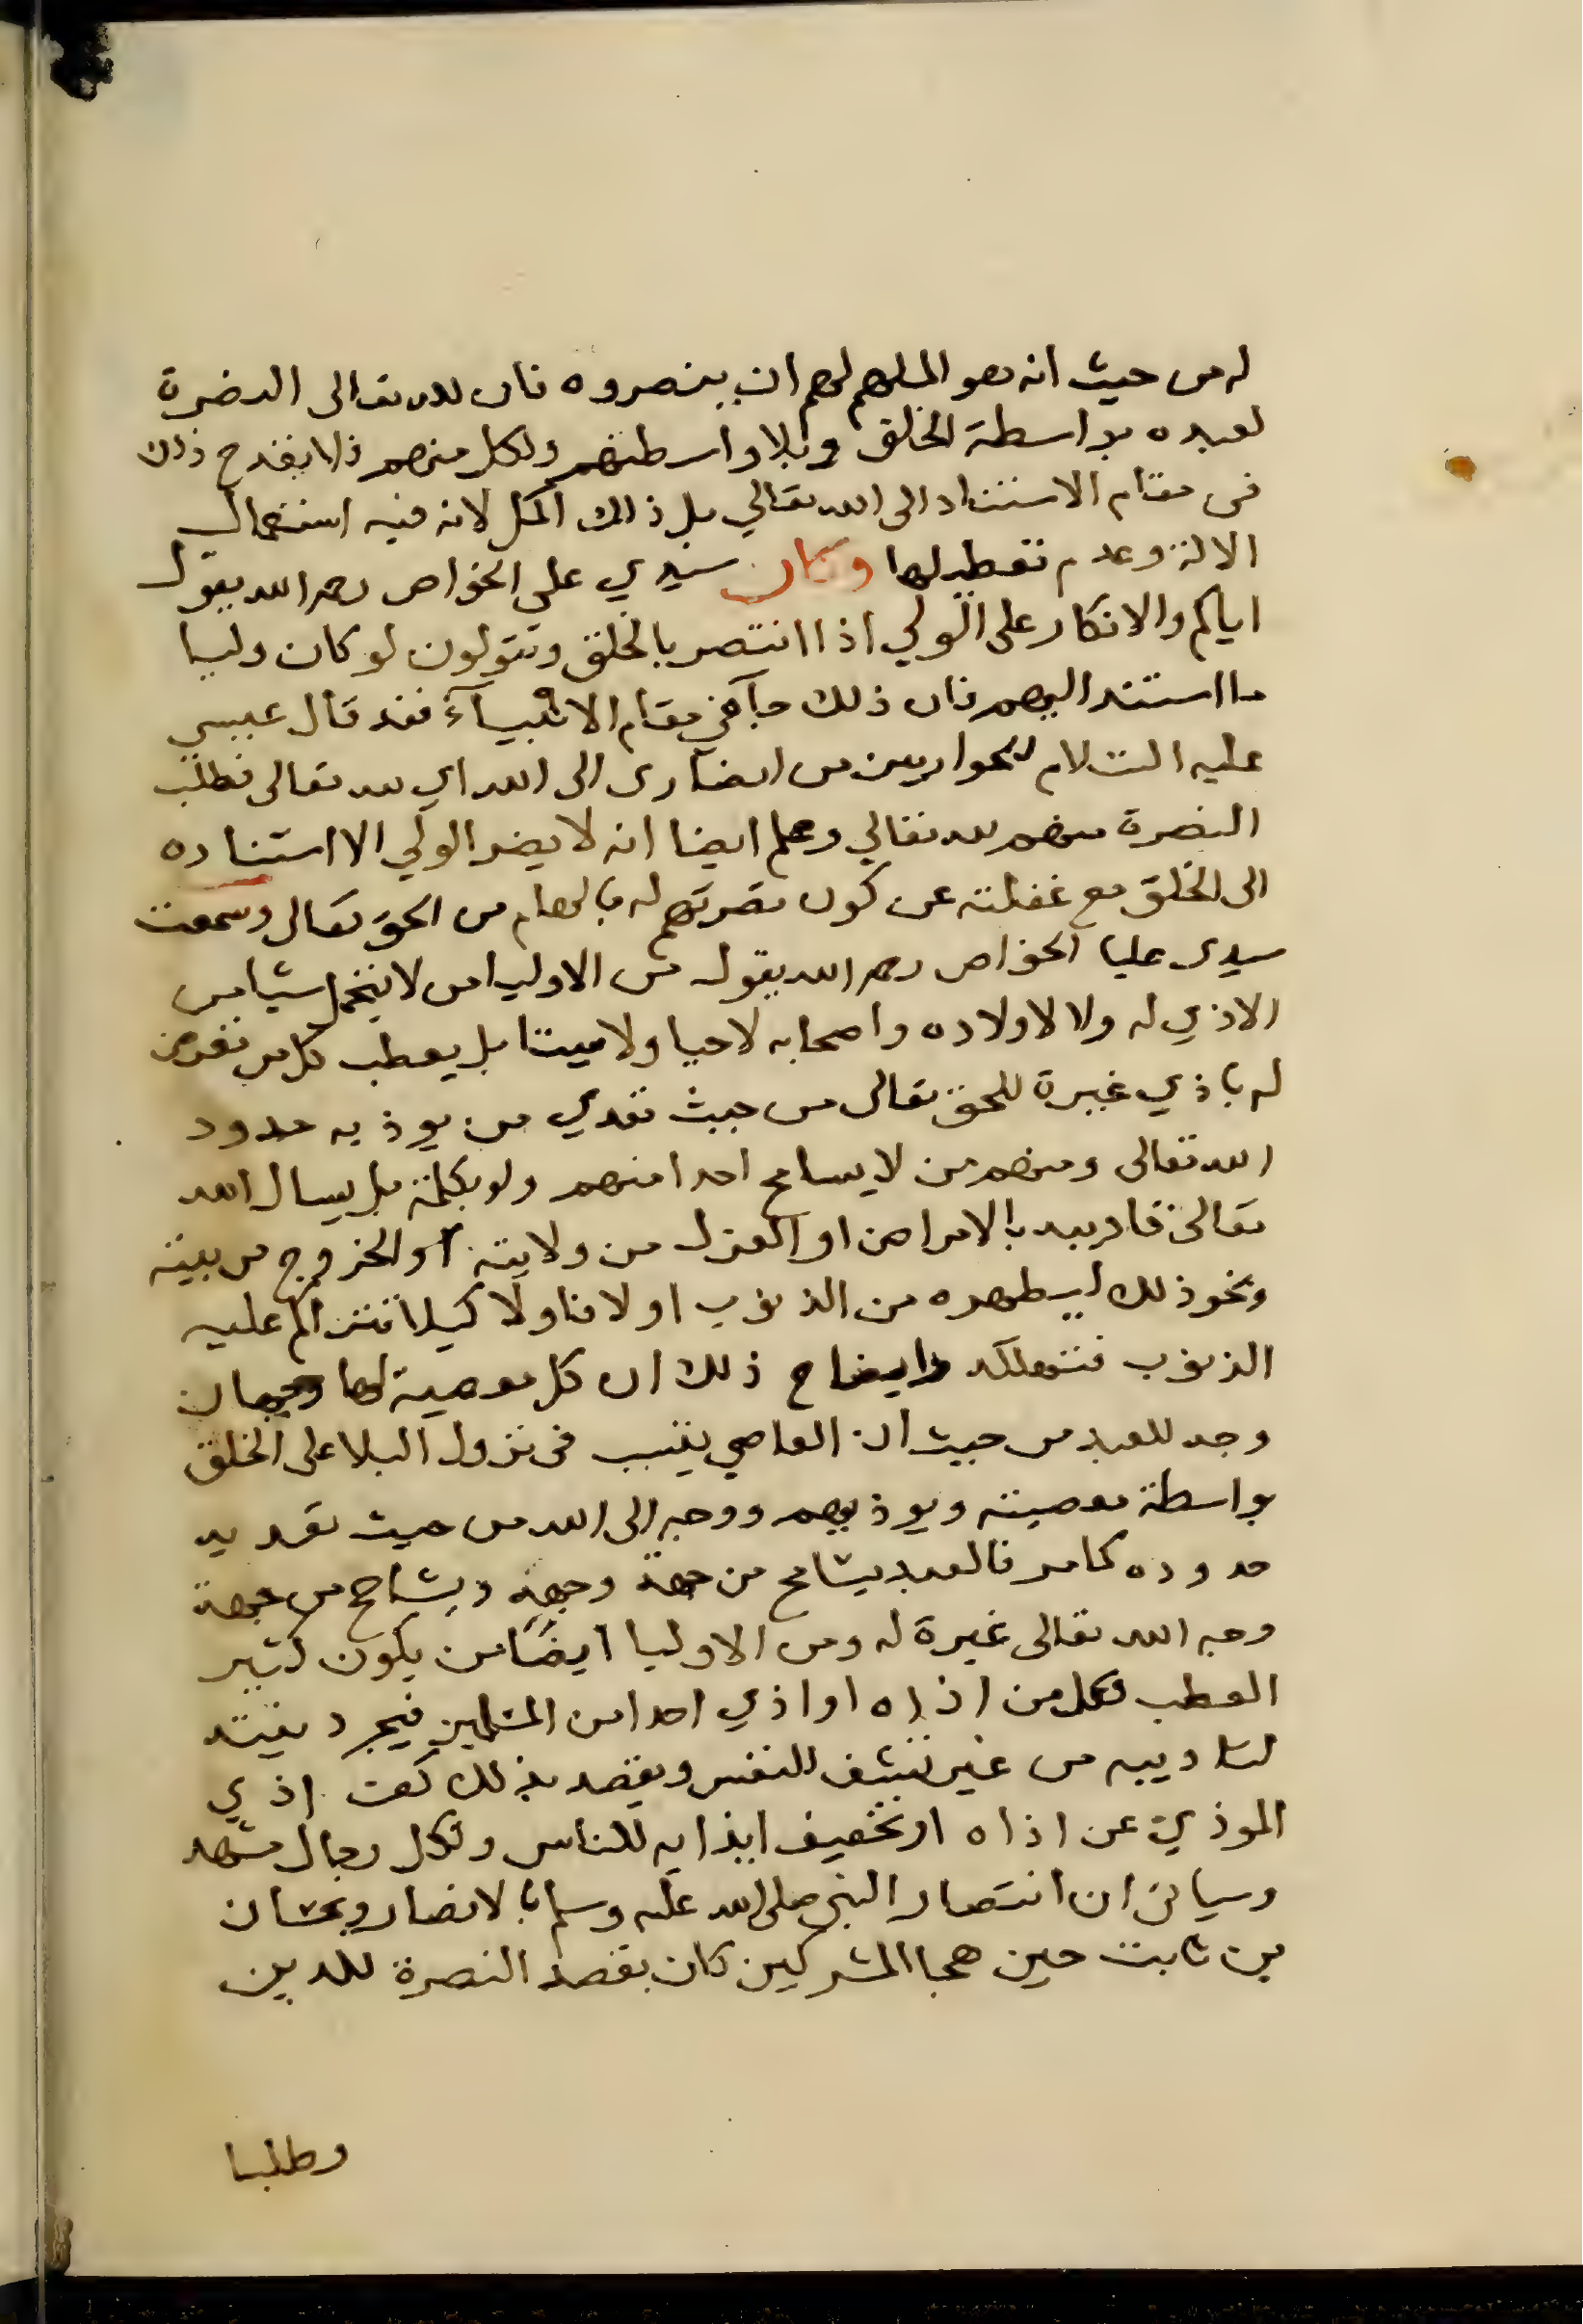 له من حيث انه هو الملهم لهم ان ينصروه فان لله تعالى النصرة
لعبده بواسطة الخلق وبلا واسطتهم ولكل منهم فلا يقدح ذلك
فى مقام الاستناد الى الله تعالي بل ذلك اكمل لانه فيه استعمال
الالة وعدم تعطيلها وكان سيدي علي الخواص رحمه الله يقول
اياكم والانكار على الولي اذا انتصر بالخلق وتقولون لو كان وليا
ما استند اليهم فان ذلك جآ في مقام الانبيآء فقد قال عيسي
عليه السلام للحواريين من انصارى الى الله اي لله تعالى فطلب
النصرة منهم لله تعالي وعلم ايضا انه لا يضر الولي الا استناده
الى الخلق مع غفلته عن كون نصرتهم له بالهام من الحق تعالى وسمعت
سيدى عليا الخواص رحمه الله يقول من الاوليا من لا يتحمل شيا من
الاذي له ولا لاولاده واصحابه لا حيا ولا ميتا بل يعطب كل من تعرض
له باذي غيرة للحق تعالى من حيث تعدي من يوذيه حدود
الله تعالى ومنهم من لا يسامح احدا منهم ولو بكلمة بل يسال الله
تعالى تاديبه بالامراض او العزل من ولايته او الخروج من بيته
ونحو ذلك ليطهره من الذنوب اولا فاولا كيلا تتراكم عليه
الذنوب فتهلكه وايضاح ذلك ان كل معصية لها وجهان
وجه للعبد من حيث ان العاصي يتسبب فى نزول البلا على الخلق
بواسطة معصيته ويوذيهم ووجه الى الله من حيث تعديه
حدوده كما مر فالعبد يسامح من جهة وجهه ويشاحح من جهة
وجه الله تعالى غيرة له ومن الاوليا ايضا من يكون كثير
العطب لكل من اذاه او اذي احدا من المسلمين فيجرد نيته
لتاديبه من غير تشف للنفس ويقصد بذلك كف اذي
الموذي عن اذاه او تخفيف ايذايه للناس ولكل رجال مشهد
وسياتى ان انتصار النبى صلى الله عليه وسلم بالانصار وبحسان
بن ثابت حين هجا المشركين كان بقصد النصرة للدين
وطلبا